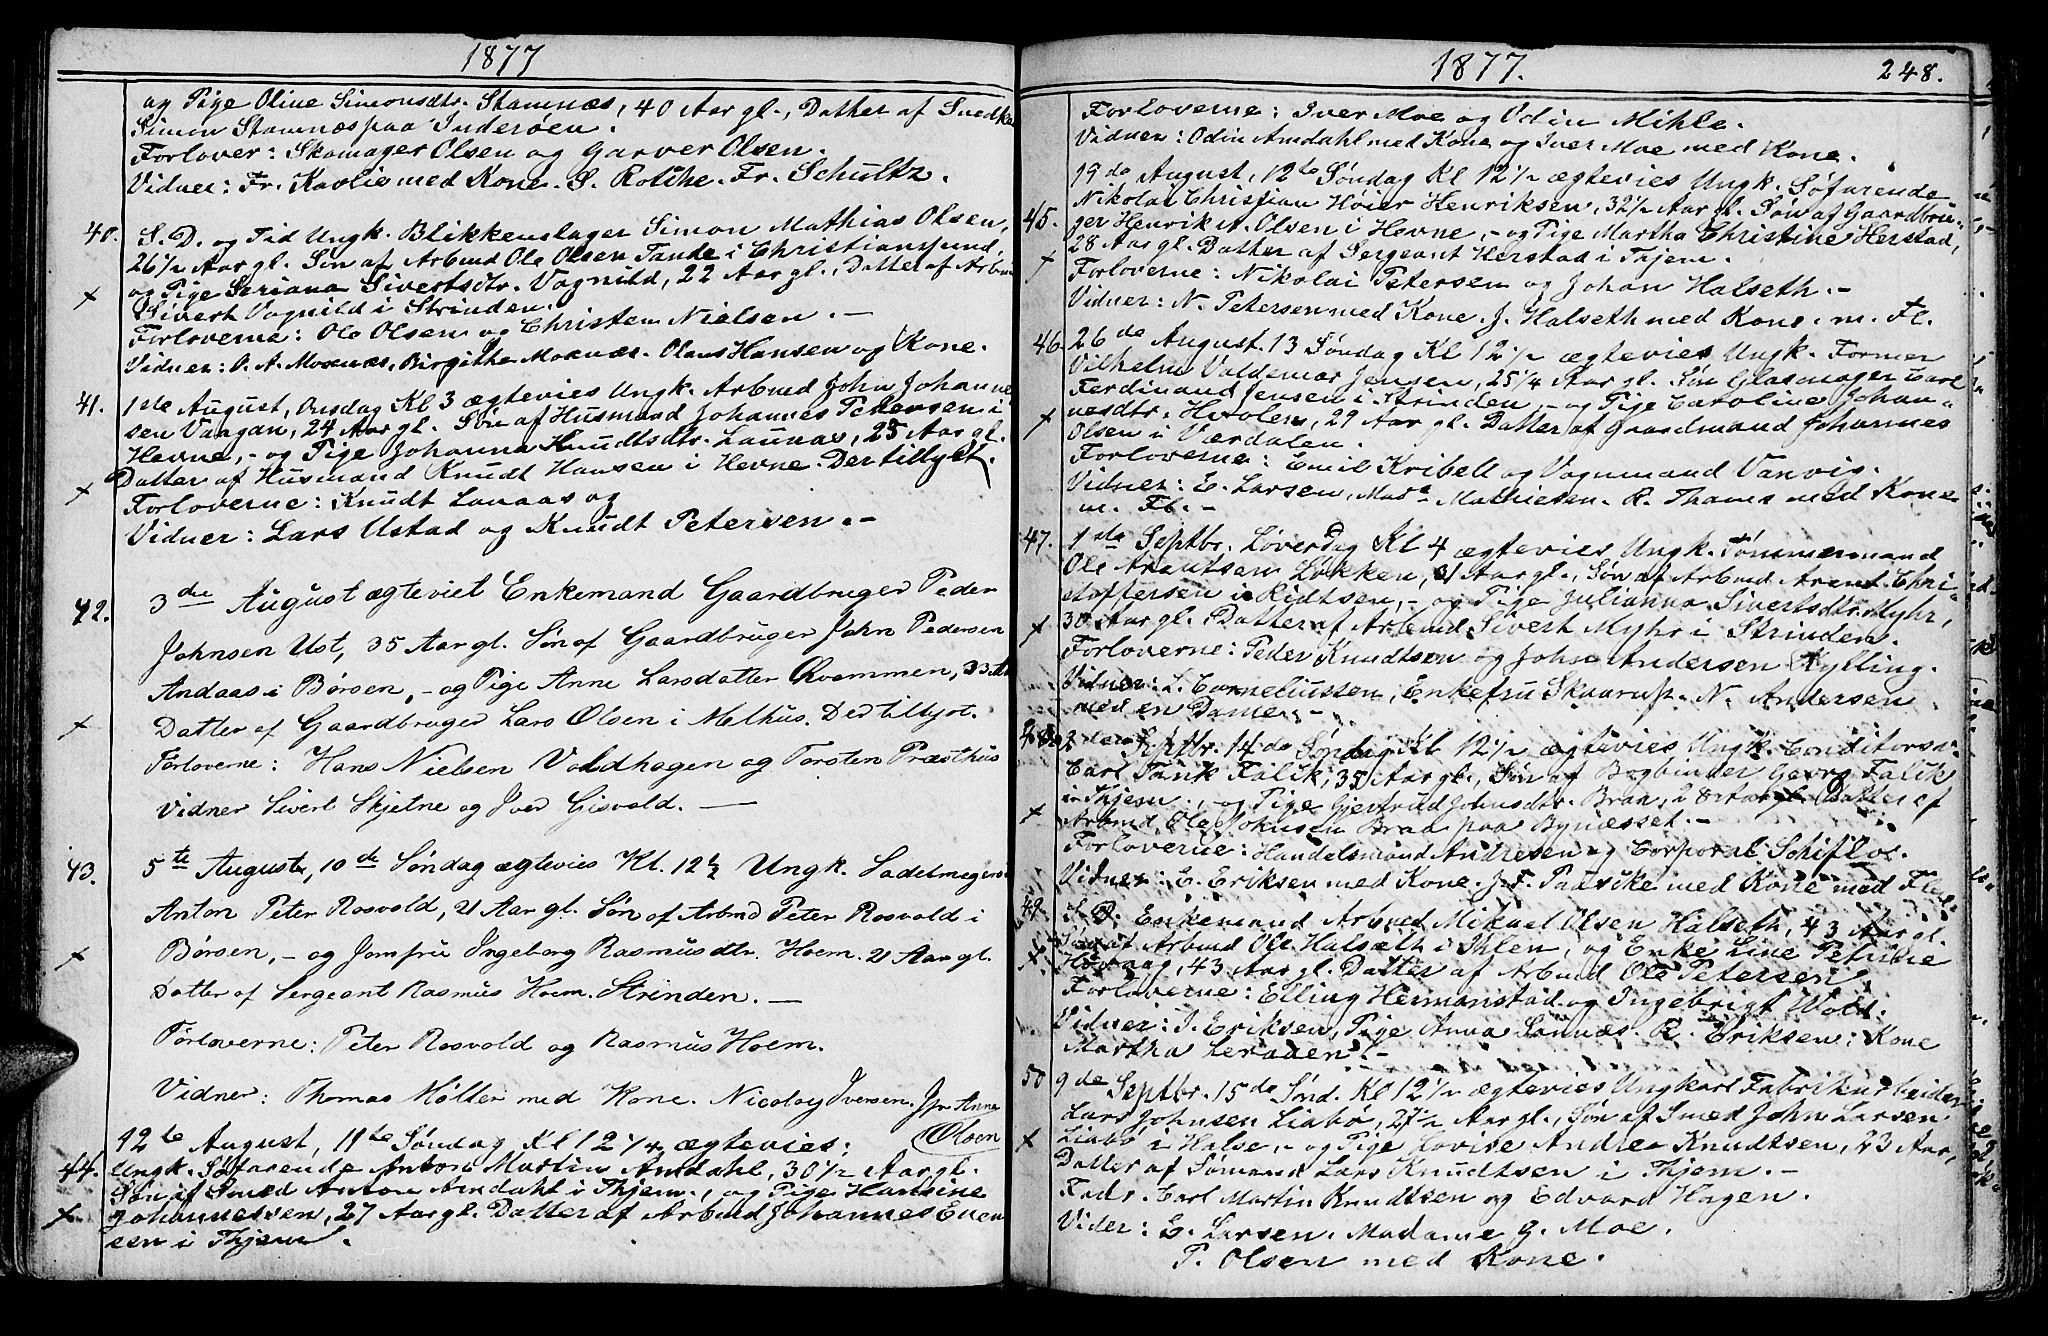 1877
og Pige Oline Simonsdtr. Stamnæs, 40 Aar gl., Datter af Snedker
Simon Stamnæs paa Inderøen.
Forlover: Skomager Olsen og Garver Olsen.
Vidner: Fr. Kavlie med Kone. S. Rotche. Fr. Schultz.
40. S. D. og Tid Ungk. Blikkenslager Simon Mathias Olsen,
26½ Aar gl. Søn af Arbmd Ole Olsen Tande i Christianssund,
og Pige Seriana Sivertsdtr. Vognild, 22 Aar gl., Datter af Arbm
x Sivert Vognild i Strinden.
Forloverne: Ole Olsen og Christen Nielsen. —
Vidner: O. A. Moxnæs, Birgitha Moxnæs. Olaus Hansen og Kone.
41. 1ste August, Onsdag Kl 3 ægtevies Ungk. Arbmd John Johanne-
sen Vaagan, 24 Aar gl. Søn af Husmand Johannes Petersen i
Hevne, - og Pige Johanna Knudtsdtr. Launas, 25 Aar gl.
Datter af Husmand Knudt Hansen i Hevne. Der tillyst.
x Forloverne: Knudt Lanaas og
Vidner: Lars Ustad og Knudt Petersen. —
42. 3die August ægteviet Enkemand Gaardbruger Peder
Johnsen Ust, 35 Aar gl. Søn af Gaardbruger John Pedersen
Andaas i Børsen, - og Pige Anne Larsdatter Qvammen, 33 Aar
x Datter af Gaardbruger Lars Olsen i Melhus. Der tillyst.
Forloverne: Hans Nielsen Valdhagen og Torsten Præsthus
Vidner Sivert Skjetne og Iver Gisvold. —
43. 5te August, 10de Søndag ægtevies Kl. 12½ Ungk. Sadelmagersv
Anton Peter Rosvold, 21 Aar gl. Søn af Arbmd Peter Rosvold i
x Børsen, - og Jomfru Ingeborg Rasmusdtr. Hoem. 21 Aar gl.
Datter af Sergeant Rasmus Hoem. Strinden. —
Forloverne: Peter Rosvold og Rasmus Hoem.
Vidner: Thomas Møller med Kone. Nicolay Iversen. Jfr Anne
Olsen
12te August, 11te Søndag Kl 12¼ ægtevies:
44. Ungk. Søfarende Anton Martin Amdahl, 30½ Aar gl.
Søn af Smed Anton Amdahl i Thjem., og Pige Hansine
x Johannessen, 27 Aar gl. Datter af Arbmd Johannes Even
sen i Thjem.
1877. 248.
Forloverne: Iver Moe og Odin Mihle.
Vidner: Odin Amdahl med Kone og Iver Moe med Kone.
19de August, 12te Søndag Kl 12½ ægtevies Ungk. Søfarende
Nikolai Christian Høier Henriksen, 32½ Aar gl. Søn af Gaardbru-
45. ger Henrik A. Olsen i Hevne, - og Pige Martha Christine Herstad,
28 Aar gl. Datter af Sergeant Herstad i Thjem.
x Forloverne: Nikolai Petersen og Johan Halseth. —
Vidner: N. Petersen med Kone. J. Halseth med Kone. m. Fl.
46. 26de August. 13 Søndag Kl 12½ ægtevies Ungk. Former
Vilhelm Valdemar Jensen, 25¼ Aar gl. Søn Glasmager Carl
Ferdinand Jensen i Strinden, - og Pige Caroline Johan-
x nesdtr. Hexolem, 29 Aar gl. Datter af Gaardmand Johannes
Olsen i Værdalen.
Forloverne: Emil Kribell og Vognmand Vanvig.
Vidner: E. Larsen, Made Mathiesen. R. Thams med Kone
m. Fl. —
47. 1ste Septbr. Løverdag Kl 4 ægtevies Ungk. Tømmermand
Ole Arentsen Løkken, 31 Aar gl., Søn af Arbmd Arent Chri-
stoffersen i Ridtsen, - og Pige Julianna Sivertsdtr. Myhr,
x 30 Aar gl. Datter af Arbmd Sivert Myhr i Strinden.
Forloverne: Peder Knudtsen og John Andersen Kylling.
Vidner: L. Corneliussen, Enkefru Skaarup. N. Andersen
med en Dame. —
48. 2den Septbr. 14de Søndag Kl 12½ ægtevies Ungk. Conditorsv.
Carl Tank Falck, 35 Aar gl., Søn af Bogbinder Georg Falck
i Thjem., og Pige Gjertrud Johnsdtr. Braa, 28 Aar gl. Datter af
x Arbmd Ole Johnsen Braa paa Bynæsset. —
Forloverne: Handelsmand Andresen og Corporal Schifloe.
Vidner: E. Eriksen med Kone. J. F. Paascke med Kone med Flere.
49. S. D. Enkemand Arbmd Mikael Olsen Halseth, 43 Aar gl.
Søn af Arbmd Ole Halseth i Ihlen, og Enke Line Petrine
x Hovaag, 43 Aar gl. Datter af Arbmd Ole Petersen
Forloverne: Elling Hermanstad og Ingebrigt Wold.
Vidner: J. Eriksen, Pige Anna Sannæs. R. Eriksen: Kone
Martha Leraden. —
50 9de Septbr. 15de Sønd. Kl 12½ ægtevies Ungkarl Fabrikarbeider
Lars Johnsen Liabø, 27½ Aar gl., Søn af Smed John Larsen
x Liabø i Halse, - og Pige Lovise Andrea Knudtsen, 23 Aar,
Datter af Sømand Lars Knudtsen i Thjem. —
Fadr. Carl Martin Knudtsen og Edvard Hagen.
Vider: E. Larsen. Madame G. Moe.
P. Olsen med Kone.